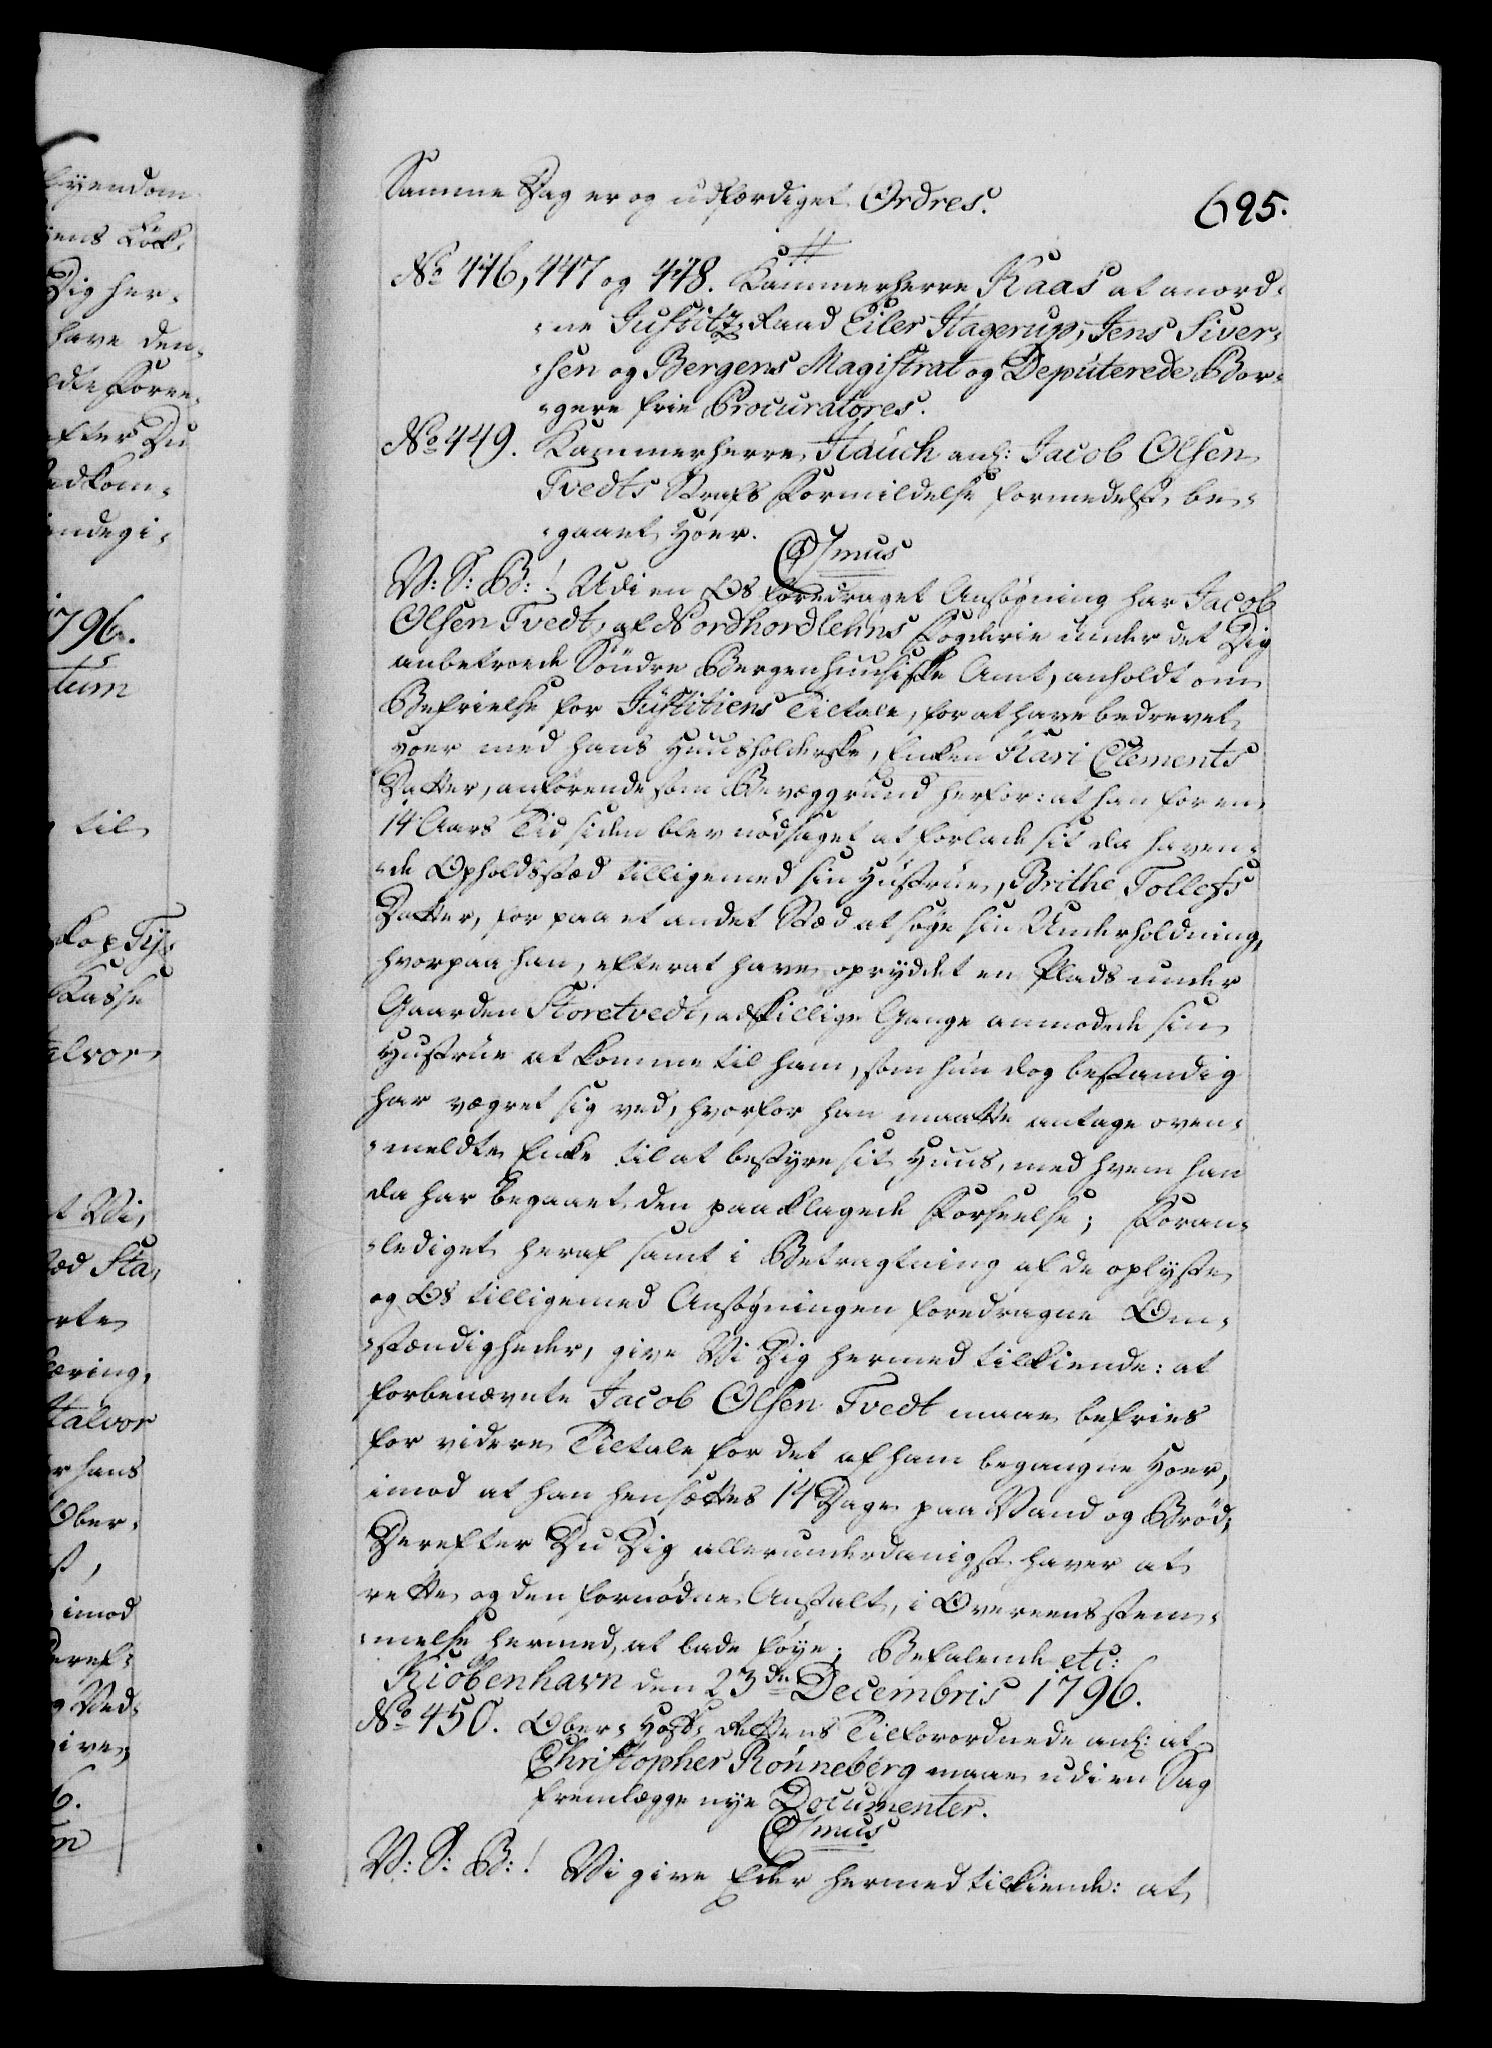 Samme Dag er og udfærdiget Ordres.
695.
No 446, 447 og 448. Kammerherre Kaas at anord-
-ne Justitz-Raad Eiler Hagerup, Jens Siver-
-sen og Bergens Magistrat og Deputerede Bor-
-gere frie Procuratores.
No 449. Kammerherre Hauch anl: Jacob Olsen
Tvedts Strafs Formildelse formedelst be-
-gaaet Hoer.
Csmus
V: S: B:! Udi en Os foredraget Ansøgning har Jacob
Olsen Tvedt, af Nordhordlehns Fogderie under det Dig
anbetroede Søndre Bergenhuusiske Amt, anholdt om
Befrielse for Justitiens Tiltale, for at have bedrevet
Hoer med hans Huusholderske, Enken Kari Clements
Datter, anførende som Bevæggrund herfor: at han for en
14 Aars Tid siden blev nødsaget at forlade sit da haven-
-de Opholdsstæd tilligemed sin Hustrue, Brithe Tollefs
Datter, for paa et andet Stæd at søge sin Underholdning,
hvorpaa han, efterat have opryddet en Plads under
Gaarden Storetvedt, adskillige Gange anmodede sin
Hustrue at komme til ham, som hun dog bestandig
har vægret sig ved, hvorfor han maatte antage oven-
-meldte Enke til at bestyre sit Huus, med hvem han
da har begaaet den paaklagede Forseelse; Foran-
-lediget heraf samt i Betragtning af de oplyste
og Os tilligemed Ansøgningen foredragne Om-
-stændigheder, give Vi Dig hermed tilkiende: at
forbenævnte Jacob Olsen Tvedt maae befries
for videre Tiltale for det af ham begangne Hoer,
imod at han hensættes 14 Dage paa Vand og Brød;
Derefter Du Dig allerunderdanigst haver at
rette og den fornødne Anstalt, i Overeensstem-
-melse hermed, at lade føye; Befalende etc:
Kiøbenhavn den 23de Decembris 1796.
No 450. Ober-Hof-Rettens Tilforordnede anl: at
Christopher Rønneberg maae udi en Sag
fremlægge nye Documenter.
Csmus
V: S: B:! Vi give Eder hermed tilkiende: at